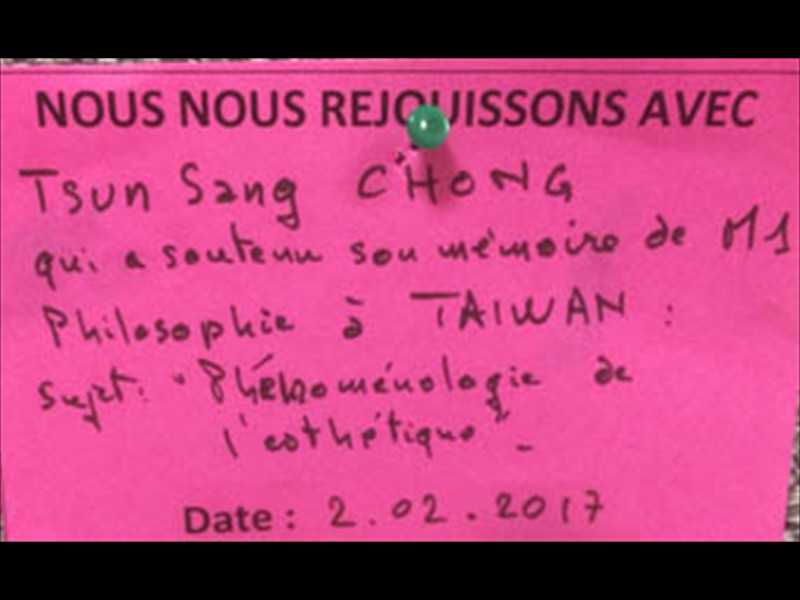 NOUS NOUS REJOUISSONS AVEC
Tsun Sang CHONG
qui a soutenu son mémoire de M1
Philosophie à TAIWAN :
Sujet : "Phénoménologie de
l'esthétique".
Date : 2.02.2017